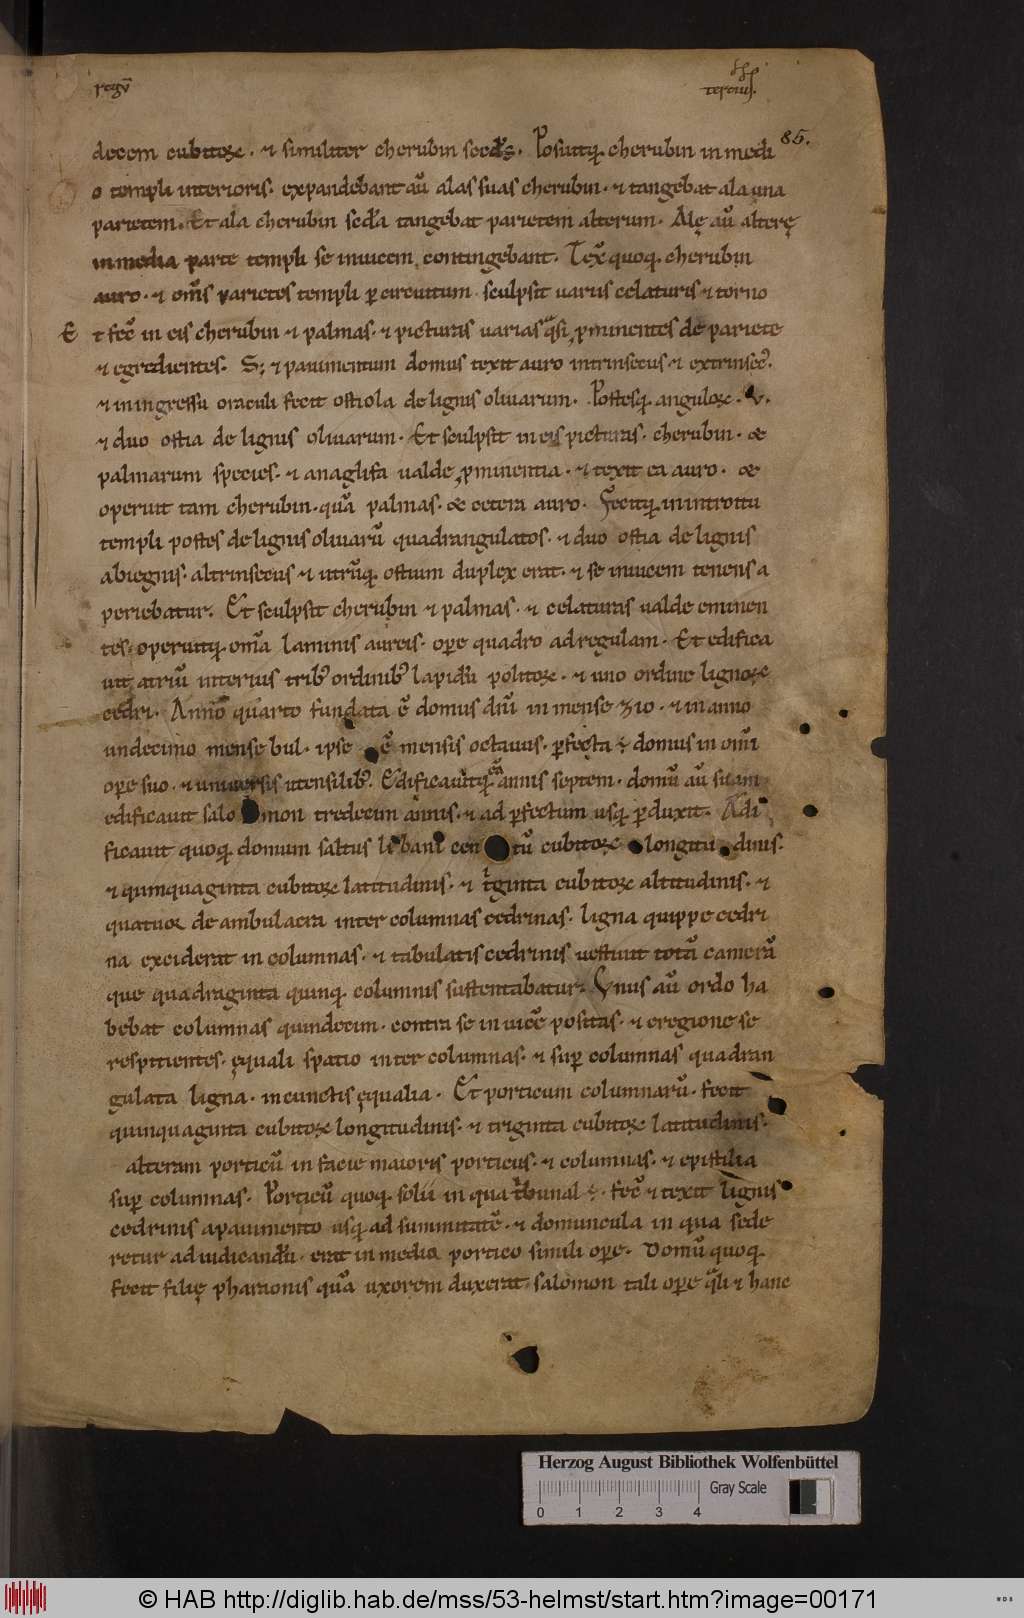 regū
tertius.
85.
decem cubitoꝝ · ⁊ similiter cherubin scd̄s. Posuitq; cherubin in medi
o templi interioris. expandebant aū alas suas cherubin · ⁊ tangebat ala una
parietem. Et ala cherubin scd̄a tangebat parietem alterum. Alę aū alterę
in media parte templi se inuicem contingebant. Tex̄ quoq; cherubin
auro · ⁊ om̄s parietes templi ꝑ circuitum sculpsit uariis celaturis ⁊ torno
E t fec̄ in eis cherubin ⁊ palmas · ⁊ picturas uarias qͣsi ꝓminentes de pariete
⁊ egredientes. S; ⁊ pauimentum domus texit auro intrinsecus ⁊ extrinsec᾽.
⁊ in ingressu oraculi fecit ostiola de lignis oliuarum. Postesq; anguloꝝ · v.
⁊ duo ostia de lignis oliuarum. Et sculpsit in eis picturas cherubin · &
palmarum species · ⁊ anaglifa ualde ꝓminentia · ⁊ texit ea auro. &
operuit tam cherubin · quā palmas · & cetera auro. Fecitq; in introitu
templi postes de lignis oliuarū quadrangulatos · ⁊ duo ostia de lignis
abiegnis · altrinsecus ⁊ utrūq; ostium duplex erat · ⁊ se inuicem tenens a
periebatur. Et sculpsit cherubin ⁊ palmas · ⁊ celaturas ualde eminen
tes · operuitq; om̄a laminis aureis · oꝑe quadro ad regulam. Et edifica
uit atriū interius trib᾽ ordinib᾽ lapidū politoꝝ · ⁊ uno ordine lignoꝝ
cedri. Anno quarto fundata ē domus dn̄i in mense zio · ⁊ in anno
undecimo mense bul · ipse ē mensis octauus · ꝑfecta ÷ domus in om̄i
oꝑe suo · ⁊ uniuersis utensilib᾽. Edificauitq; eā annis septem · domū aū suam
edificauit salomon tredecim annis · ⁊ ad ꝑfectum usq; ꝑduxit. Ædi
ficauit quoq; domum saltus libani centū cubitoꝝ longitudinis ·
⁊ quinquaginta cubitoꝝ latitudinis · ⁊ tͥginta cubitoꝝ altitudinis · ⁊
quatuor deambulacra inter columnas cedrinas · ligna quippe cedri
na exciderat in columnas · ⁊ tabulatis cedrinis uestiuit totā camerā
que quadraginta quinq; columnis sustentabatur. Unus aū ordo ha
bebat columnas quindecim · contra se in uicē positas · ⁊ e regione se
respicientes · ęquali spatio inter columnas · ⁊ suꝑ columnas quadran
gulata ligna · in cunctis ęqualia. Et porticum columnarū · fecit
quinquaginta cubitoꝝ longitudinis · ⁊ triginta cubitoꝝ latitudinis ·
alteram porticū in facie maioris porticus · ⁊ columnas · ⁊ epistilia
suꝑ columnas. Porticū quoq; solii in qua tͥbunal ÷ · fec̄ ⁊ texit lignis
cedrinis a pauimento usq; ad summitatē · ⁊ domuncula in qua sede
retur ad iudicandū · erat in media portico simili oꝑe. Domū quoq;
fecit filię pharaonis quā uxorem duxerat salomon tali oꝑe qͣli ⁊ hanc
Herzog August Bibliothek Wolfenbüttel
Gray Scale
0 1 2 3 4
© HAB http://diglib.hab.de/mss/53-helmst/start.htm?image=00171